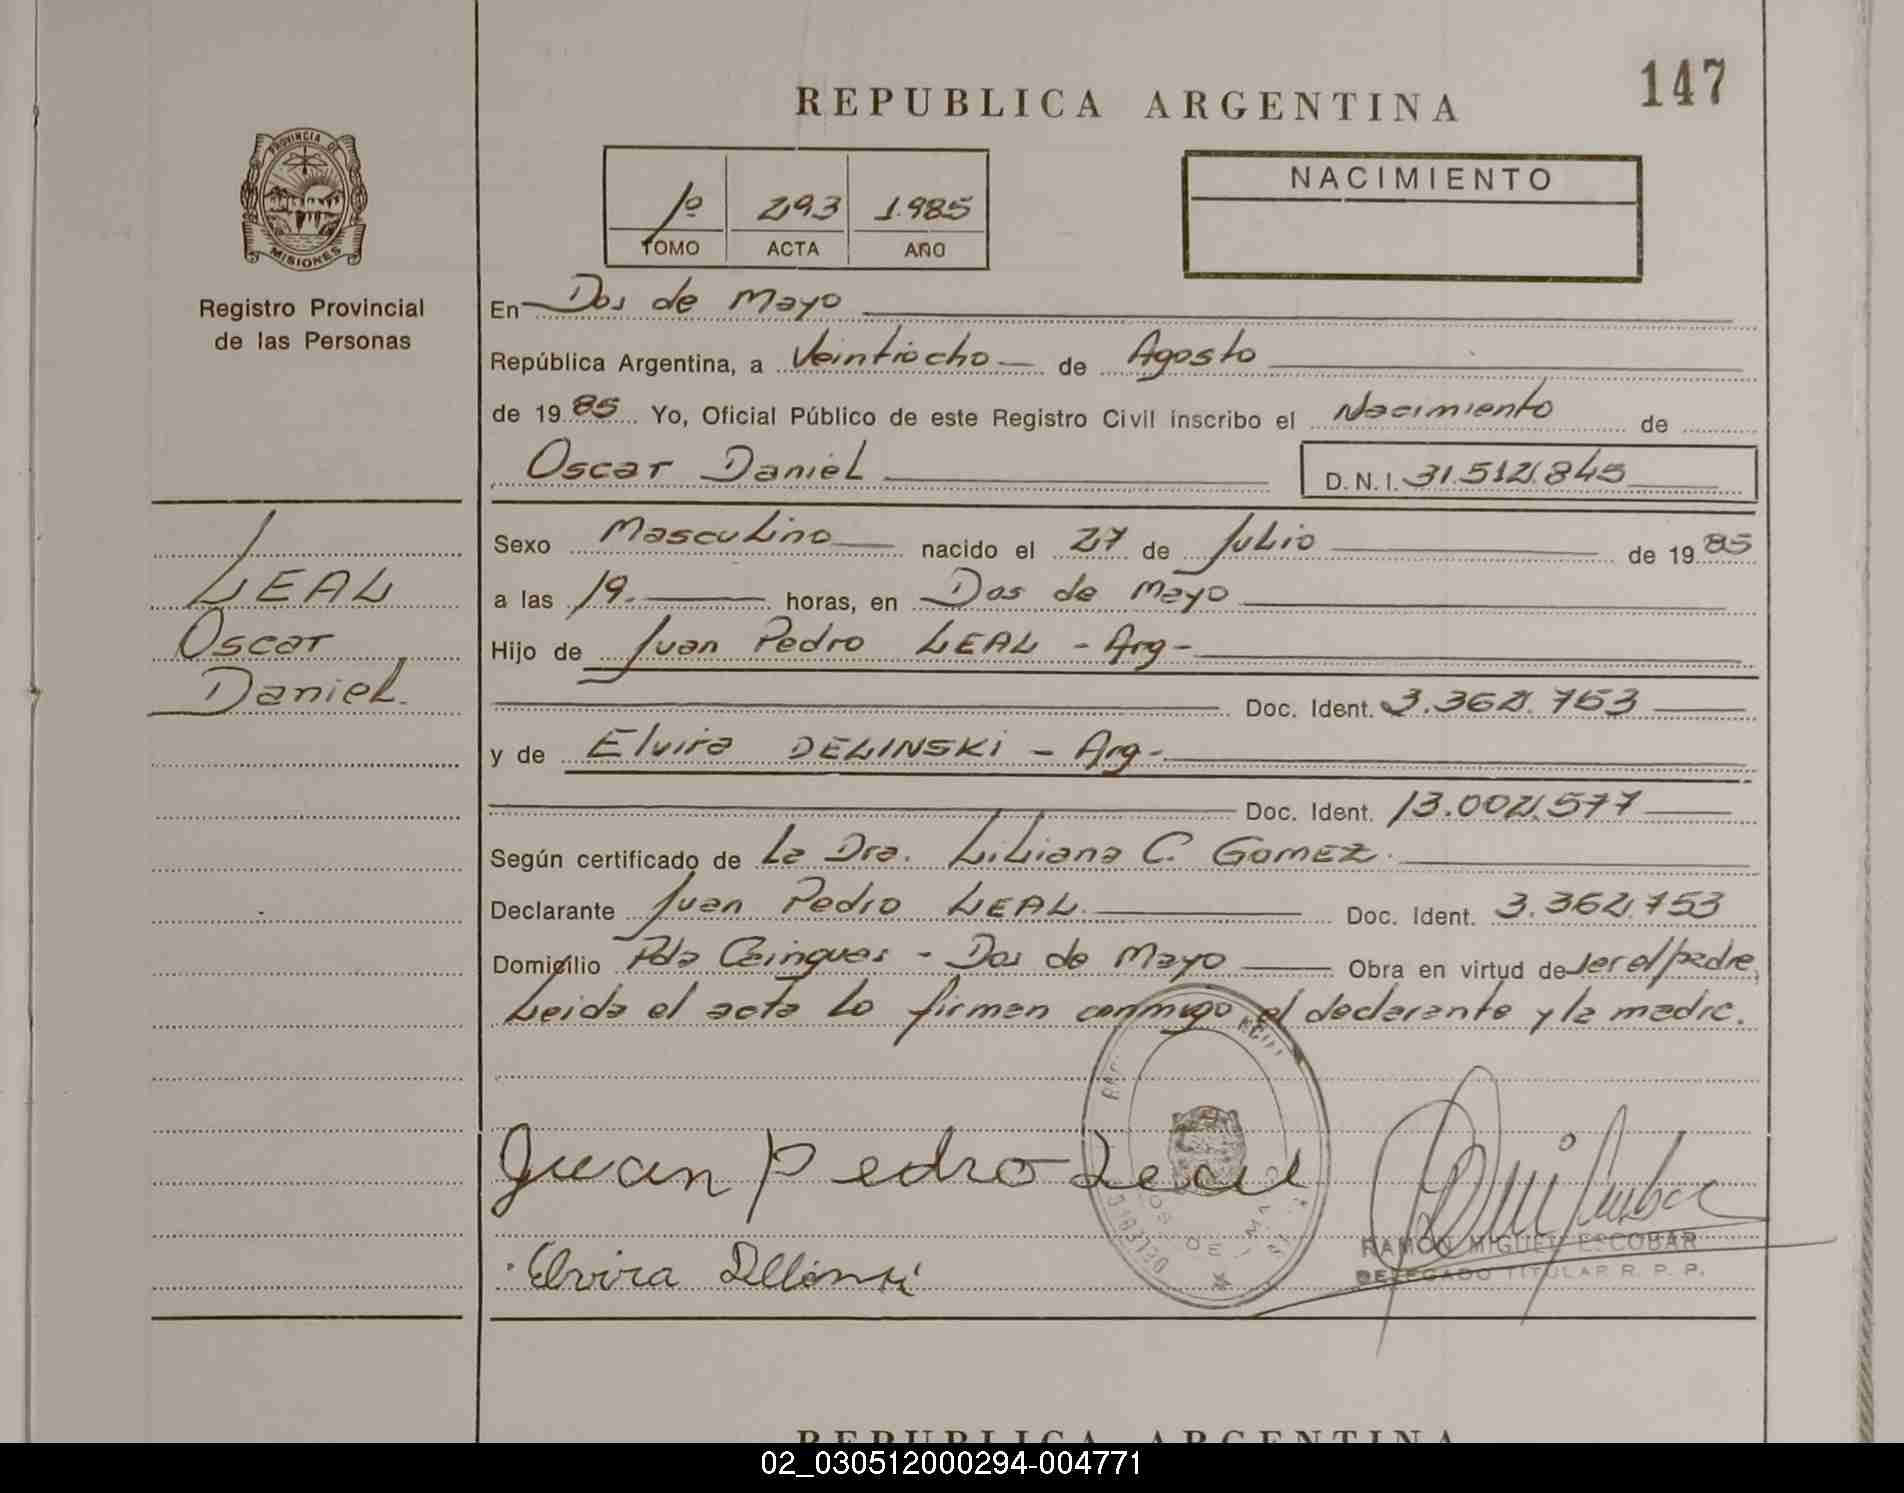 147
REPUBLICA ARGENTINA
PROVINCIA DE
MISIONES
Registro Provincial
de las Personas
1º 293 1.985
TOMO ACTA AÑO
NACIMIENTO
En Dos de Mayo
República Argentina, a Veintiocho de Agosto
de 1985 Yo, Oficial Público de este Registro Civil inscribo el Nacimiento de
Oscar Daniel D.N.I. 31.512.845
LEAL
Oscar
Daniel.
Sexo Masculino nacido el 27 de Julio de 1985
a las 19. horas, en Dos de Mayo
Hijo de Juan Pedro LEAL - Arg -
Doc. Ident. 3.362.753
y de Elvira DELINSKI - Arg -
Doc. Ident. 13.002.577
Según certificado de La Dra. Liliana C. GOMEZ.
Declarante Juan Pedro LEAL. Doc. Ident. 3.362.753
Domicilio Pda - Dos de Mayo Obra en virtud de ser el padre,
Leida el acta lo firman conmigo el declarante y la madre.
Juan Pedro Leal
Elvira
DOS DE MAYO
RAMON MIGUEL ESCOBAR
DELEGADO TITULAR R. P. P.
REPUBLICA ARGENTINA
02_030512000294-004771